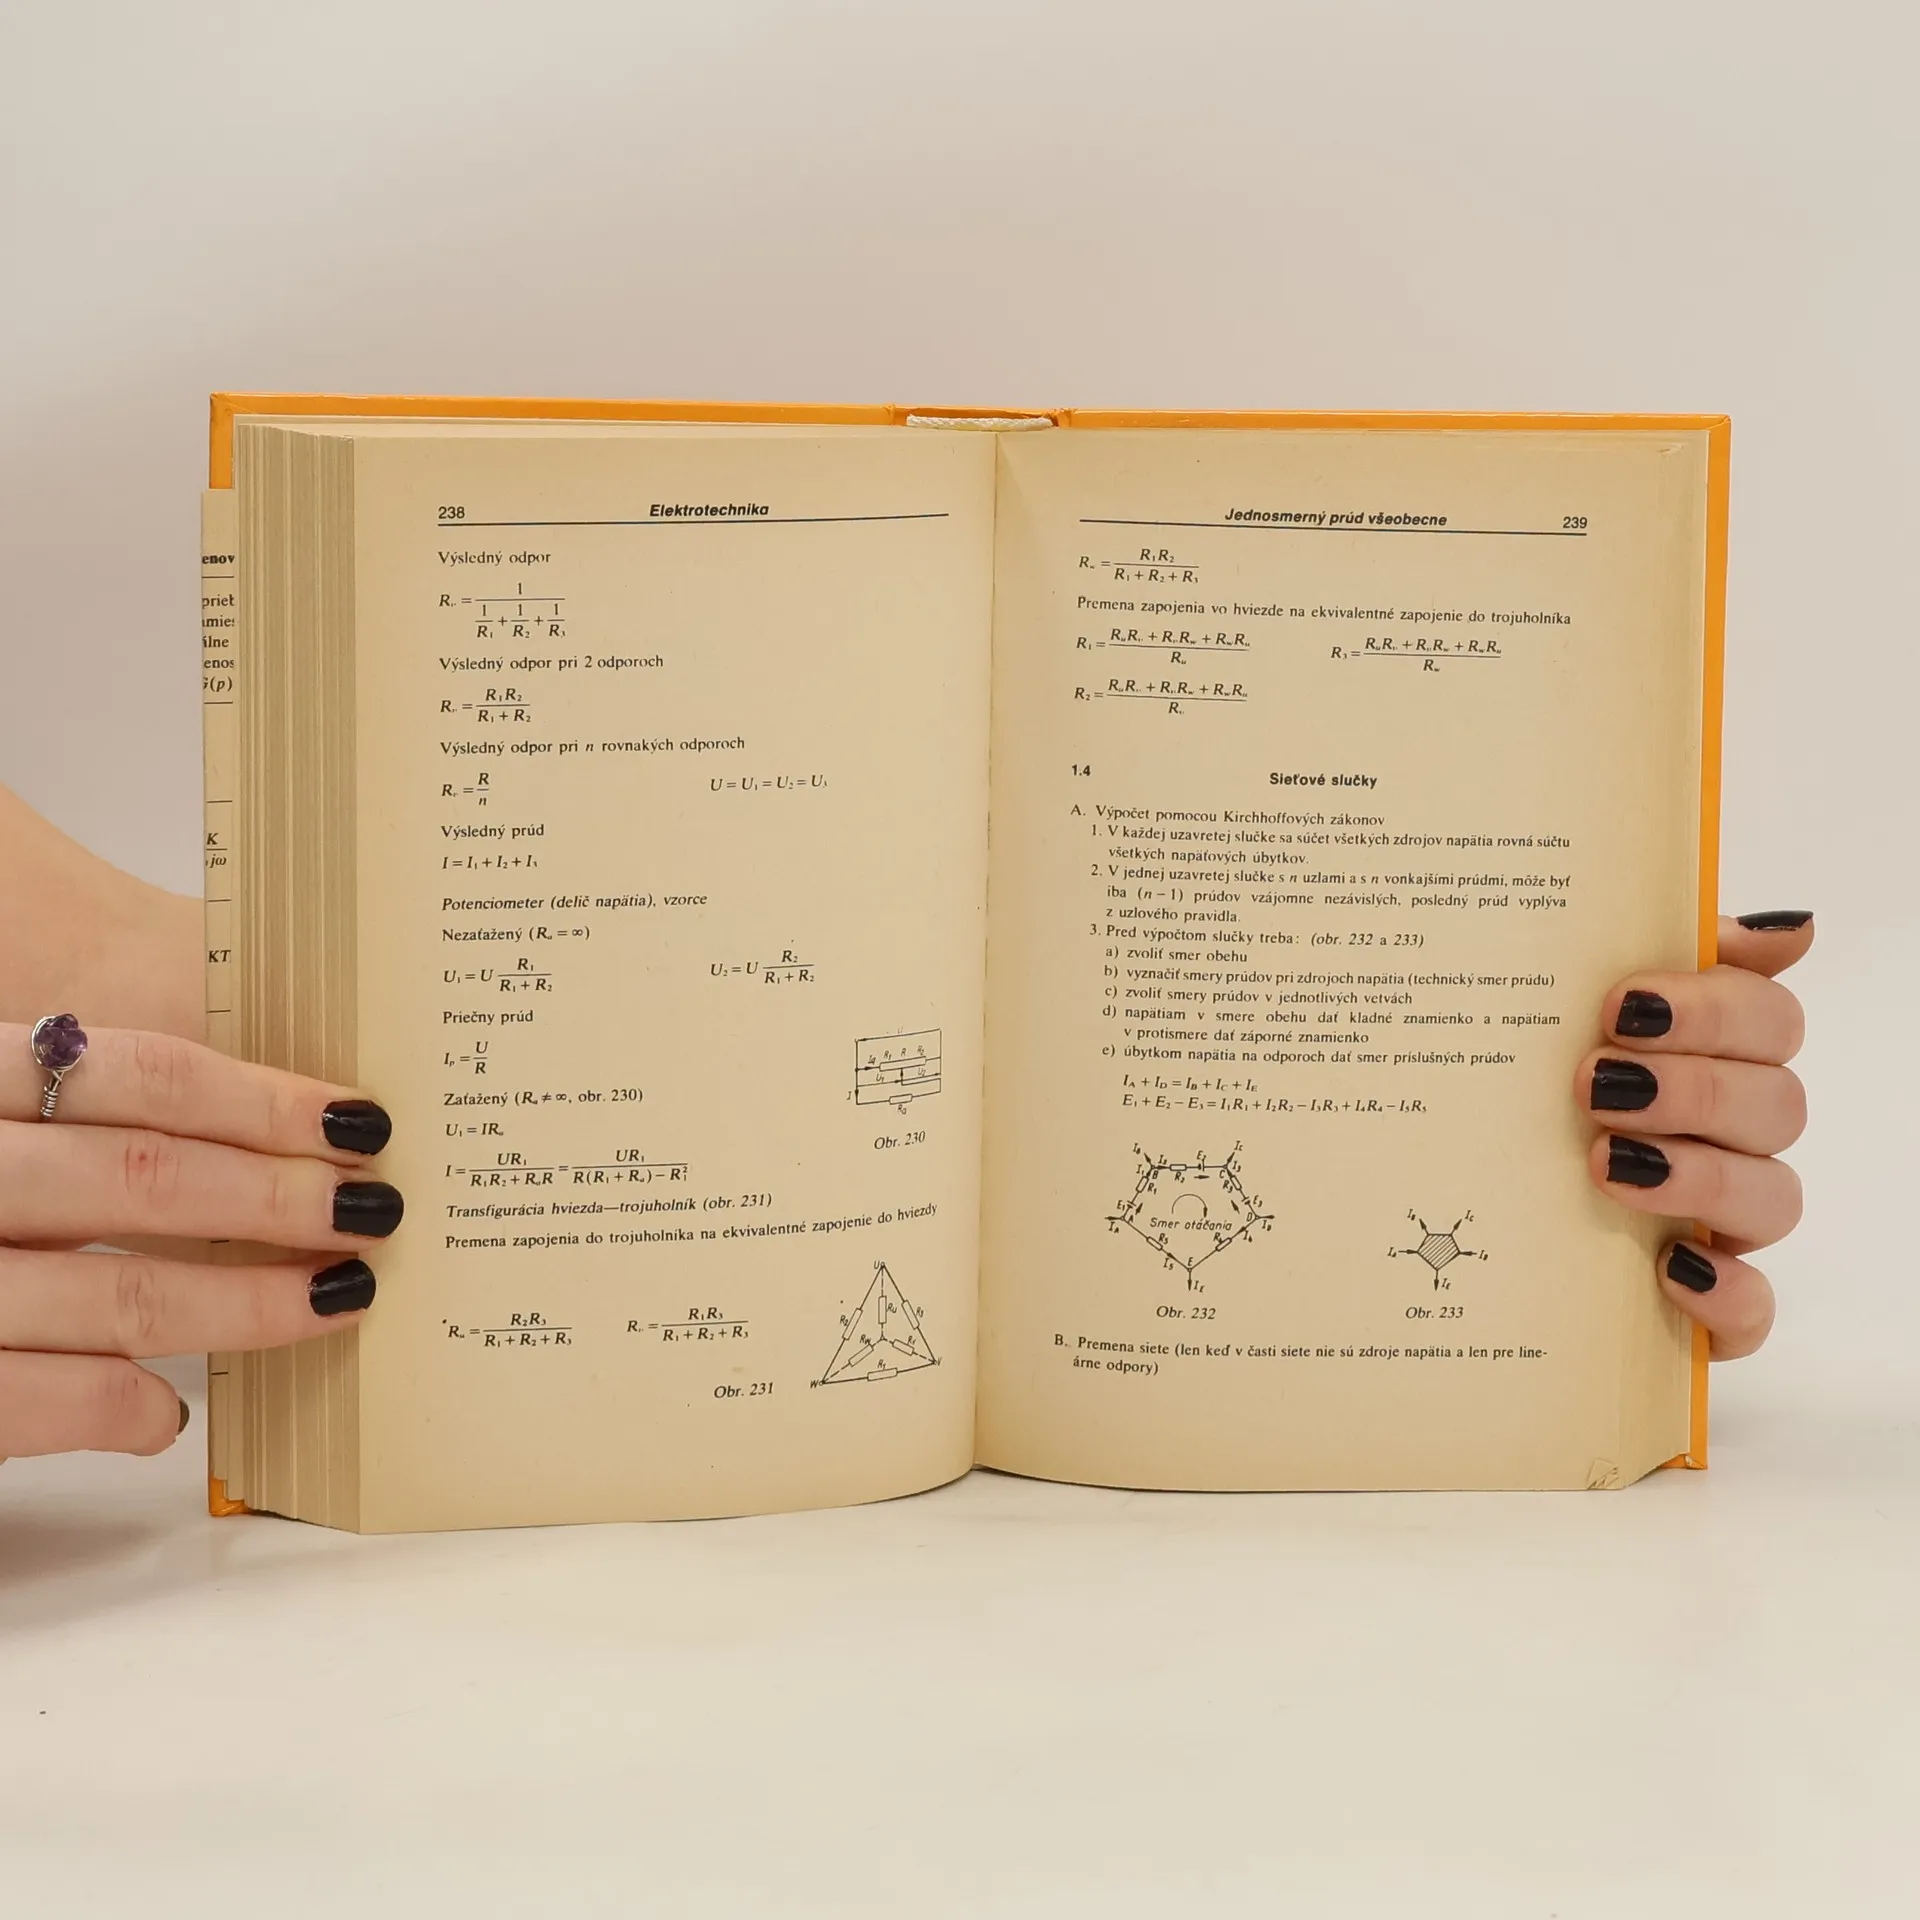 enov
prieb
álne
enos
G(p)
K
jω
KT
238 Elektrotechnika
Výsledný odpor
Rᵥ = 1 / (1/R₁ + 1/R₂ + 1/R₃)
Výsledný odpor pri 2 odporoch
Rᵥ = R₁R₂ / (R₁ + R₂)
Výsledný odpor pri n rovnakých odporoch
Rᵥ = R/n U = U₁ = U₂ = U₃
Výsledný prúd
I = I₁ + I₂ + I₃
Potenciometer (delič napätia), vzorce
Nezaťažený (Rₐ = ∞)
U₁ = U R₁ / (R₁ + R₂) U₂ = U R₂ / (R₁ + R₂)
Priečny prúd
Iₚ = U/R
Zaťažený (Rₐ ≠ ∞, obr. 230)
U₁ = IRₐ
I = UR₁ / (R₁R₂ + RₐR) = UR₁ / (R(R₁ + Rₐ) − R₁²)
Obr. 230
Transfigurácia hviezda—trojuholník (obr. 231)
Premena zapojenia do trojuholníka na ekvivalentné zapojenie do hviezdy
Rᵤ = R₂R₃ / (R₁ + R₂ + R₃) Rᵥ = R₁R₃ / (R₁ + R₂ + R₃)
Obr. 231
Jednosmerný prúd všeobecne 239
R_w = R₁R₂ / (R₁ + R₂ + R₃)
Premena zapojenia vo hviezde na ekvivalentné zapojenie do trojuholníka
R₁ = (RᵤRᵥ + RᵥR_w + R_wRᵤ) / Rᵤ R₃ = (RᵤRᵥ + RᵥR_w + R_wRᵤ) / R_w
R₂ = (RᵤRᵥ + RᵥR_w + R_wRᵤ) / Rᵥ
1.4 Sieťové slučky
A. Výpočet pomocou Kirchhoffových zákonov
1. V každej uzavretej slučke sa súčet všetkých zdrojov napätia rovná súčtu
všetkých napäťových úbytkov.
2. V jednej uzavretej slučke s n uzlami a s n vonkajšími prúdmi, môže byť
iba (n − 1) prúdov vzájomne nezávislých, posledný prúd vyplýva
z uzlového pravidla.
3. Pred výpočtom slučky treba: (obr. 232 a 233)
a) zvoliť smer obehu
b) vyznačiť smery prúdov pri zdrojoch napätia (technický smer prúdu)
c) zvoliť smery prúdov v jednotlivých vetvách
d) napätiam v smere obehu dať kladné znamienko a napätiam
v protismere dať záporné znamienko
e) úbytkom napätia na odporoch dať smer príslušných prúdov
I_A + I_D = I_B + I_C + I_E
E₁ + E₂ − E₃ = I₁R₁ + I₂R₂ − I₃R₃ + I₄R₄ − I₅R₅
Smer otáčania
Obr. 232 Obr. 233
B. Premena siete (len keď v časti siete nie sú zdroje napätia a len pre line-
árne odpory)